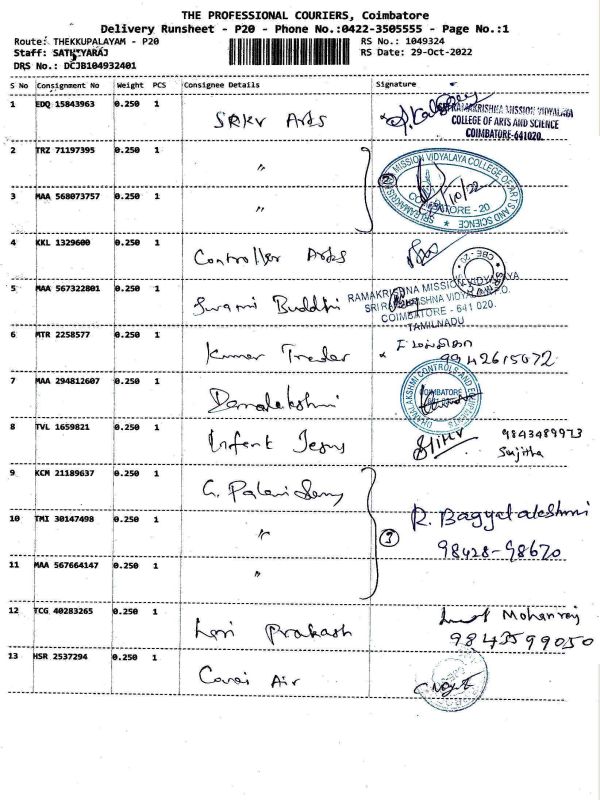 THE PROFESSIONAL COURIERS, Coimbatore
Delivery Runsheet - P20 - Phone No.:0422-3505555 - Page No.:1
Route: THEKKUPALAYAM - P20 RS No.: 1049324
Staff: SATHYARAJ RS Date: 29-Oct-2022
DRS No.: DCJB104932401
S No Consignment No Weight PCS Consignee Details Signature
1 EDQ 15843963 0.250 1 SRKV Arts
SRI RAMAKRISHNA MISSION VIDYALAYA
COLLEGE OF ARTS AND SCIENCE
COIMBATORE-641020.
2 TRZ 71197395 0.250 1 "
3 MAA 568073757 0.250 1 "
② MISSION VIDYALAYA COLLEGE OF ARTS AND SCIENCE SRI RAMAKRISHNA
COIMBATORE - 20
4 KKL 1329600 0.250 1 Controller Arts
5 MAA 567322801 0.250 1 Swami Buddhi
RAMAKRISHNA MISSION VIDYALAYA
COIMBATORE - 641 020.
TAMILNADU
6 MTR 2258577 0.250 1 Kumar Trader
9942615072
7 MAA 294812607 0.250 1 Danalakshmi
DHANALAKSHMI CONTROLS AND EQUIPMENTS
COIMBATORE
8 TVL 1659821 0.250 1 Infent Jesus 9843489973
Sujitha
9 KCM 21189637 0.250 1 G. Palani Samy
10 TMI 30147498 0.250 1 " ③ R. Baggyalakshmi
98428-98670
11 MAA 567664147 0.250 1 "
12 TCG 40283265 0.250 1 Hari Prakash Mohanraj
9843599050
13 HSR 2537294 0.250 1 Canai Air